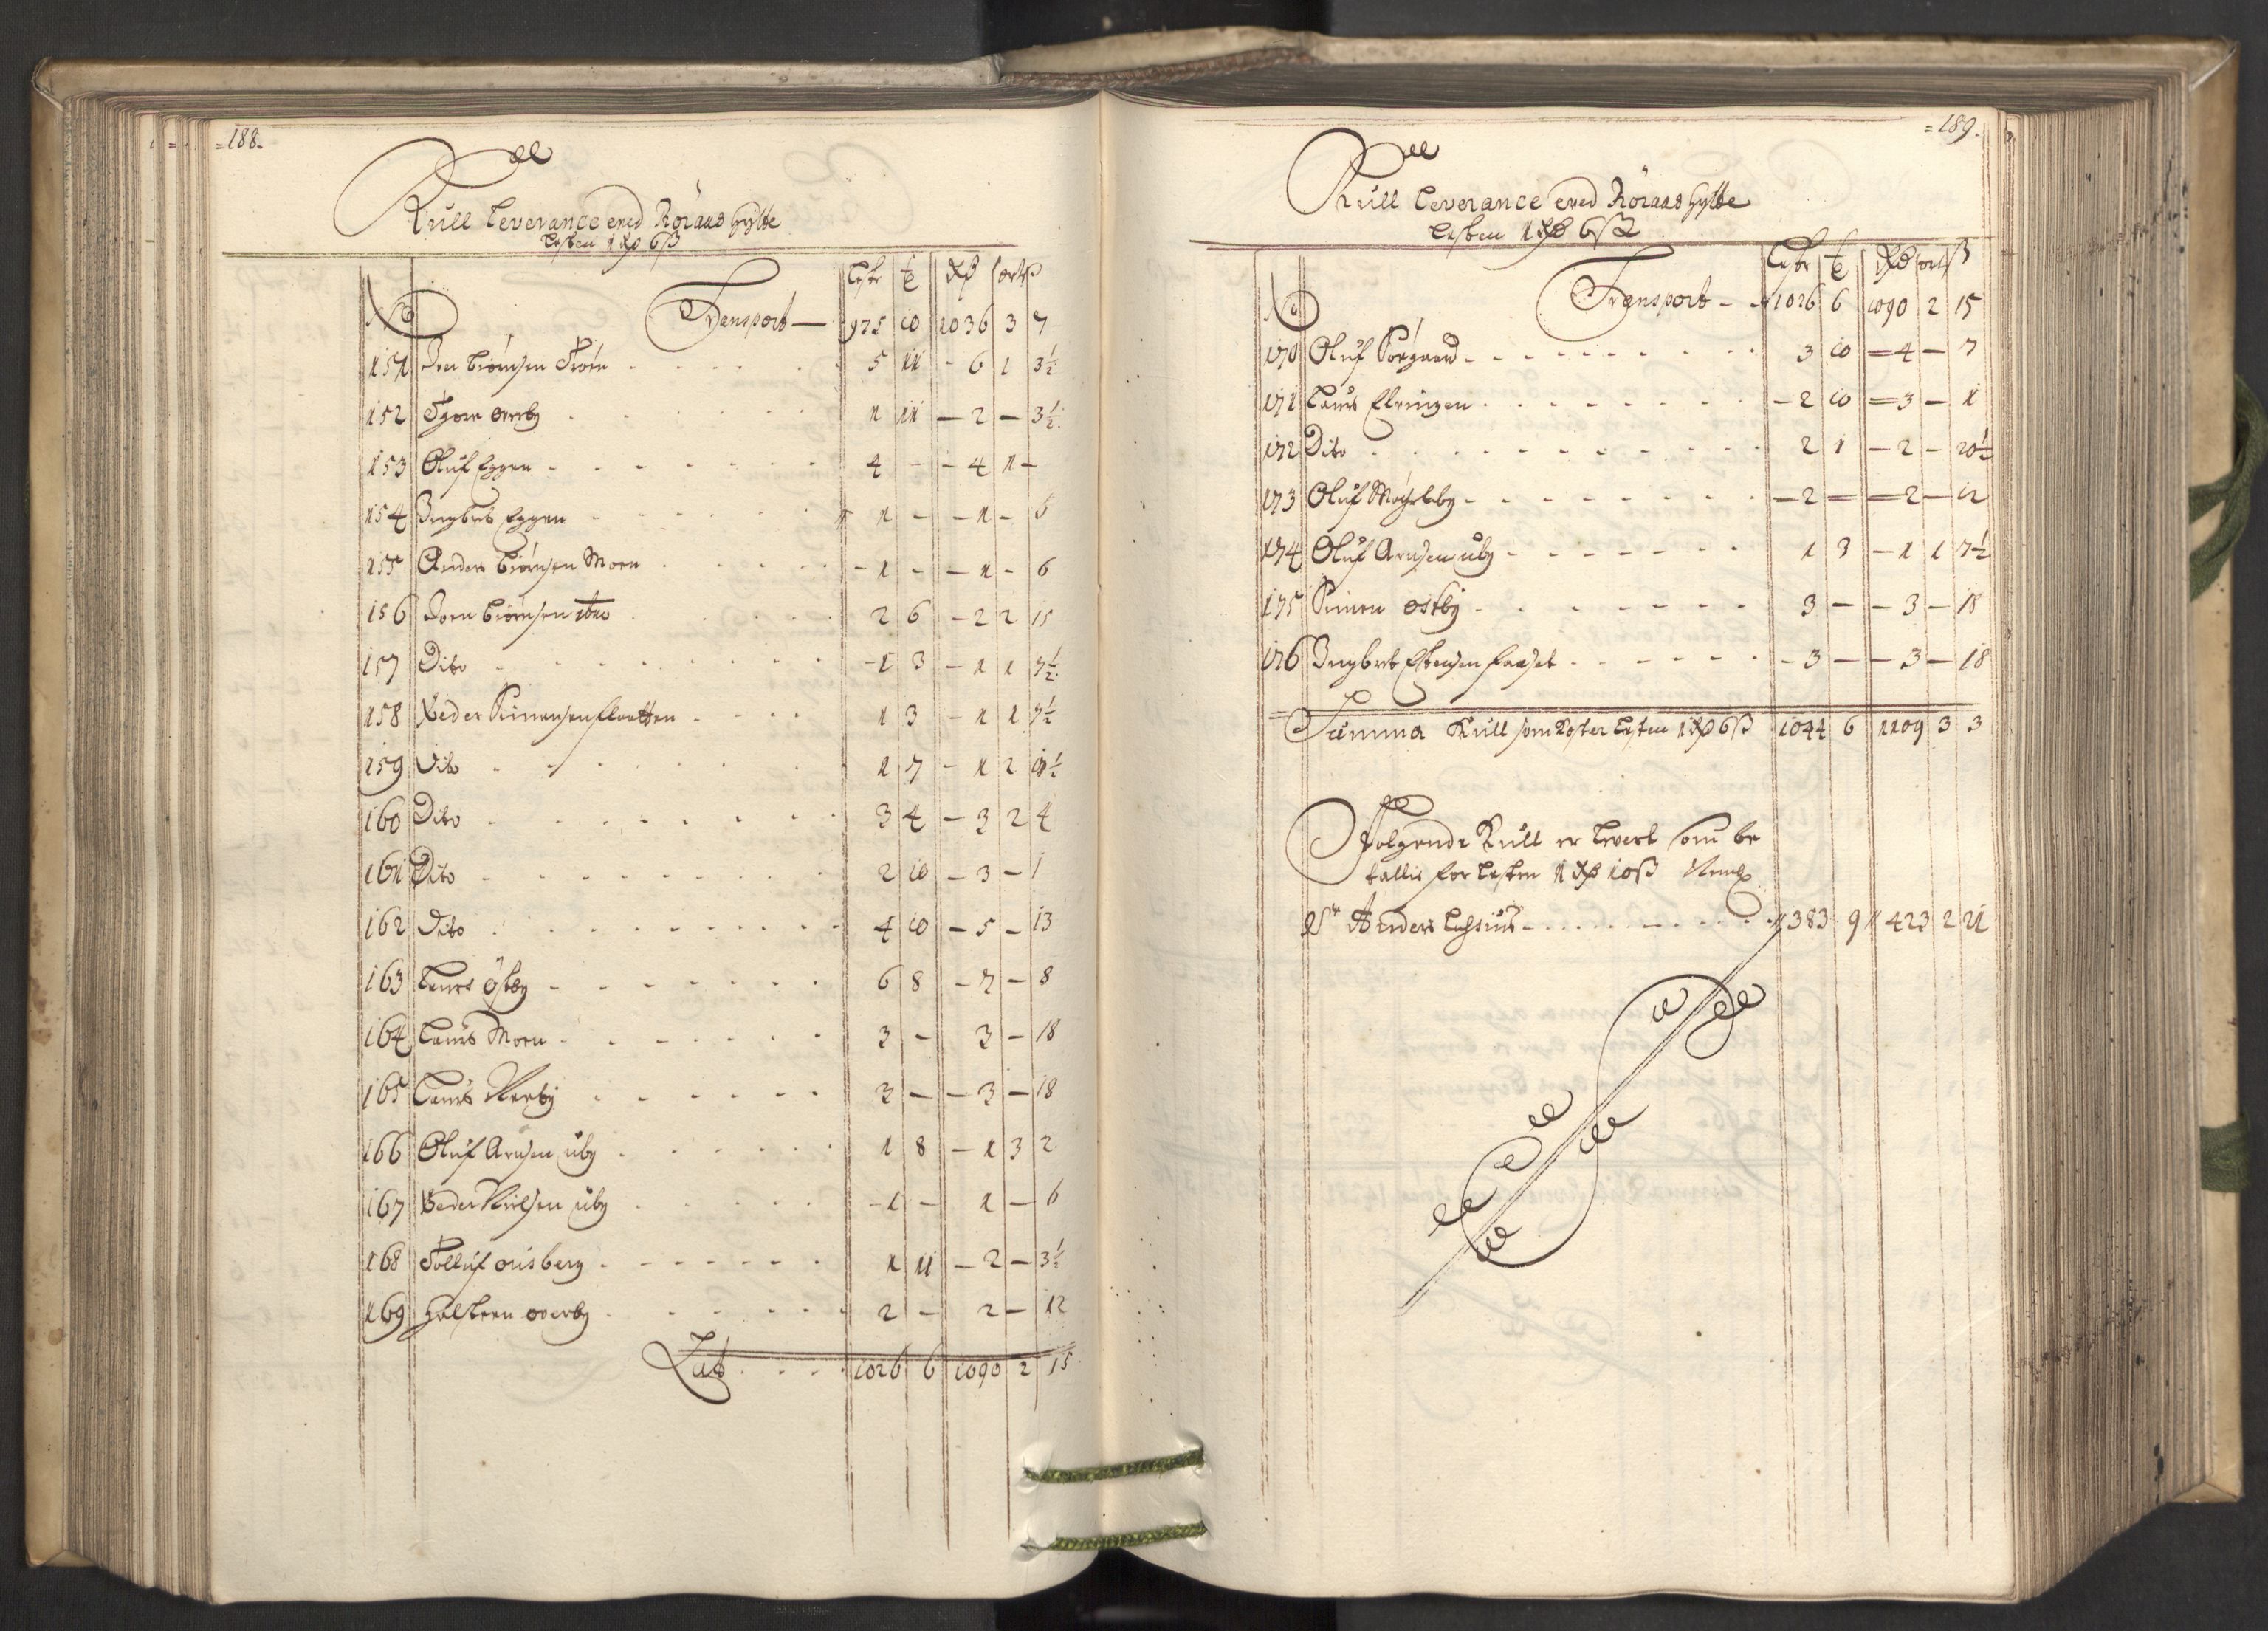 188.
Kull Leverance ved Röraas Hytte
Lesten 1 Rd 6 ß
No Transport — 975 10 1036 3 7
151 Jon Biörnsen 5 11 - 6 1 3½
152 Tyore overby 1 11 — 2 — 3½
153 Oluf Eggen 4 - - 4 1 -
154 Ingbrt Eggen 1 - - 1 - 6
155 Anders Biörnsen Moen - 1 - - 1 - 6
156 Joen Biörnsen 2 6 - 2 2 15
157 Dito - 1 3 - 1 1 7½
158 Peder Simensen flaatten 1 3 - 1 1 7½
159 Dito 1 7 - 1 2 11½
160 Dito 3 4 - 3 2 4
161 Dito 2 10 - 3 - 1
162 Dito 4 10 - 5 - 13
163 Laurs östby 6 8 - 7 - 8
164 Laurs Moen 3 - 3 - 18
165 Laurs Nerby 3 - - 3 - 18
166 Oluf Arnsen uby 1 8 - 1 3 2
167 Peder Nielsen uby - 1 - 1 - 6
168 Tolluf ousberg 1 11 - 2 - 3½
169 Halsteen overby 2 - 2 - 12
Lat 1026 6 1090 2 15
189.
Kull Leverance ved Röraas Hytte
Lesten 1 Rd 6 ß
No Transport - 1026 6 1090 2 15
170 Oluf Sörgaard 3 10 = 4 - 7
171 Laurs Elvingen - 2 10 = 3 - 1
172 Dito 2 1 - 2 - 20½
173 Oluf Möchelby - 2 = = 2 - 12
174 Oluf Arnsen uby 1 3 - 1 1 7½
175 Simen östbÿ 3 - - 3 - 18
176 Ingbrt Estensen faaset - 3 - - 3 - 18
Summa Kull som koster Lesten 1 Rd 6 ß 1044 6 1109 3 3
Folgende Kull er Lveret som be
tallis for Lesten 1 Rd 10 ß Neml
Sr Anders 383 9 423 2 21